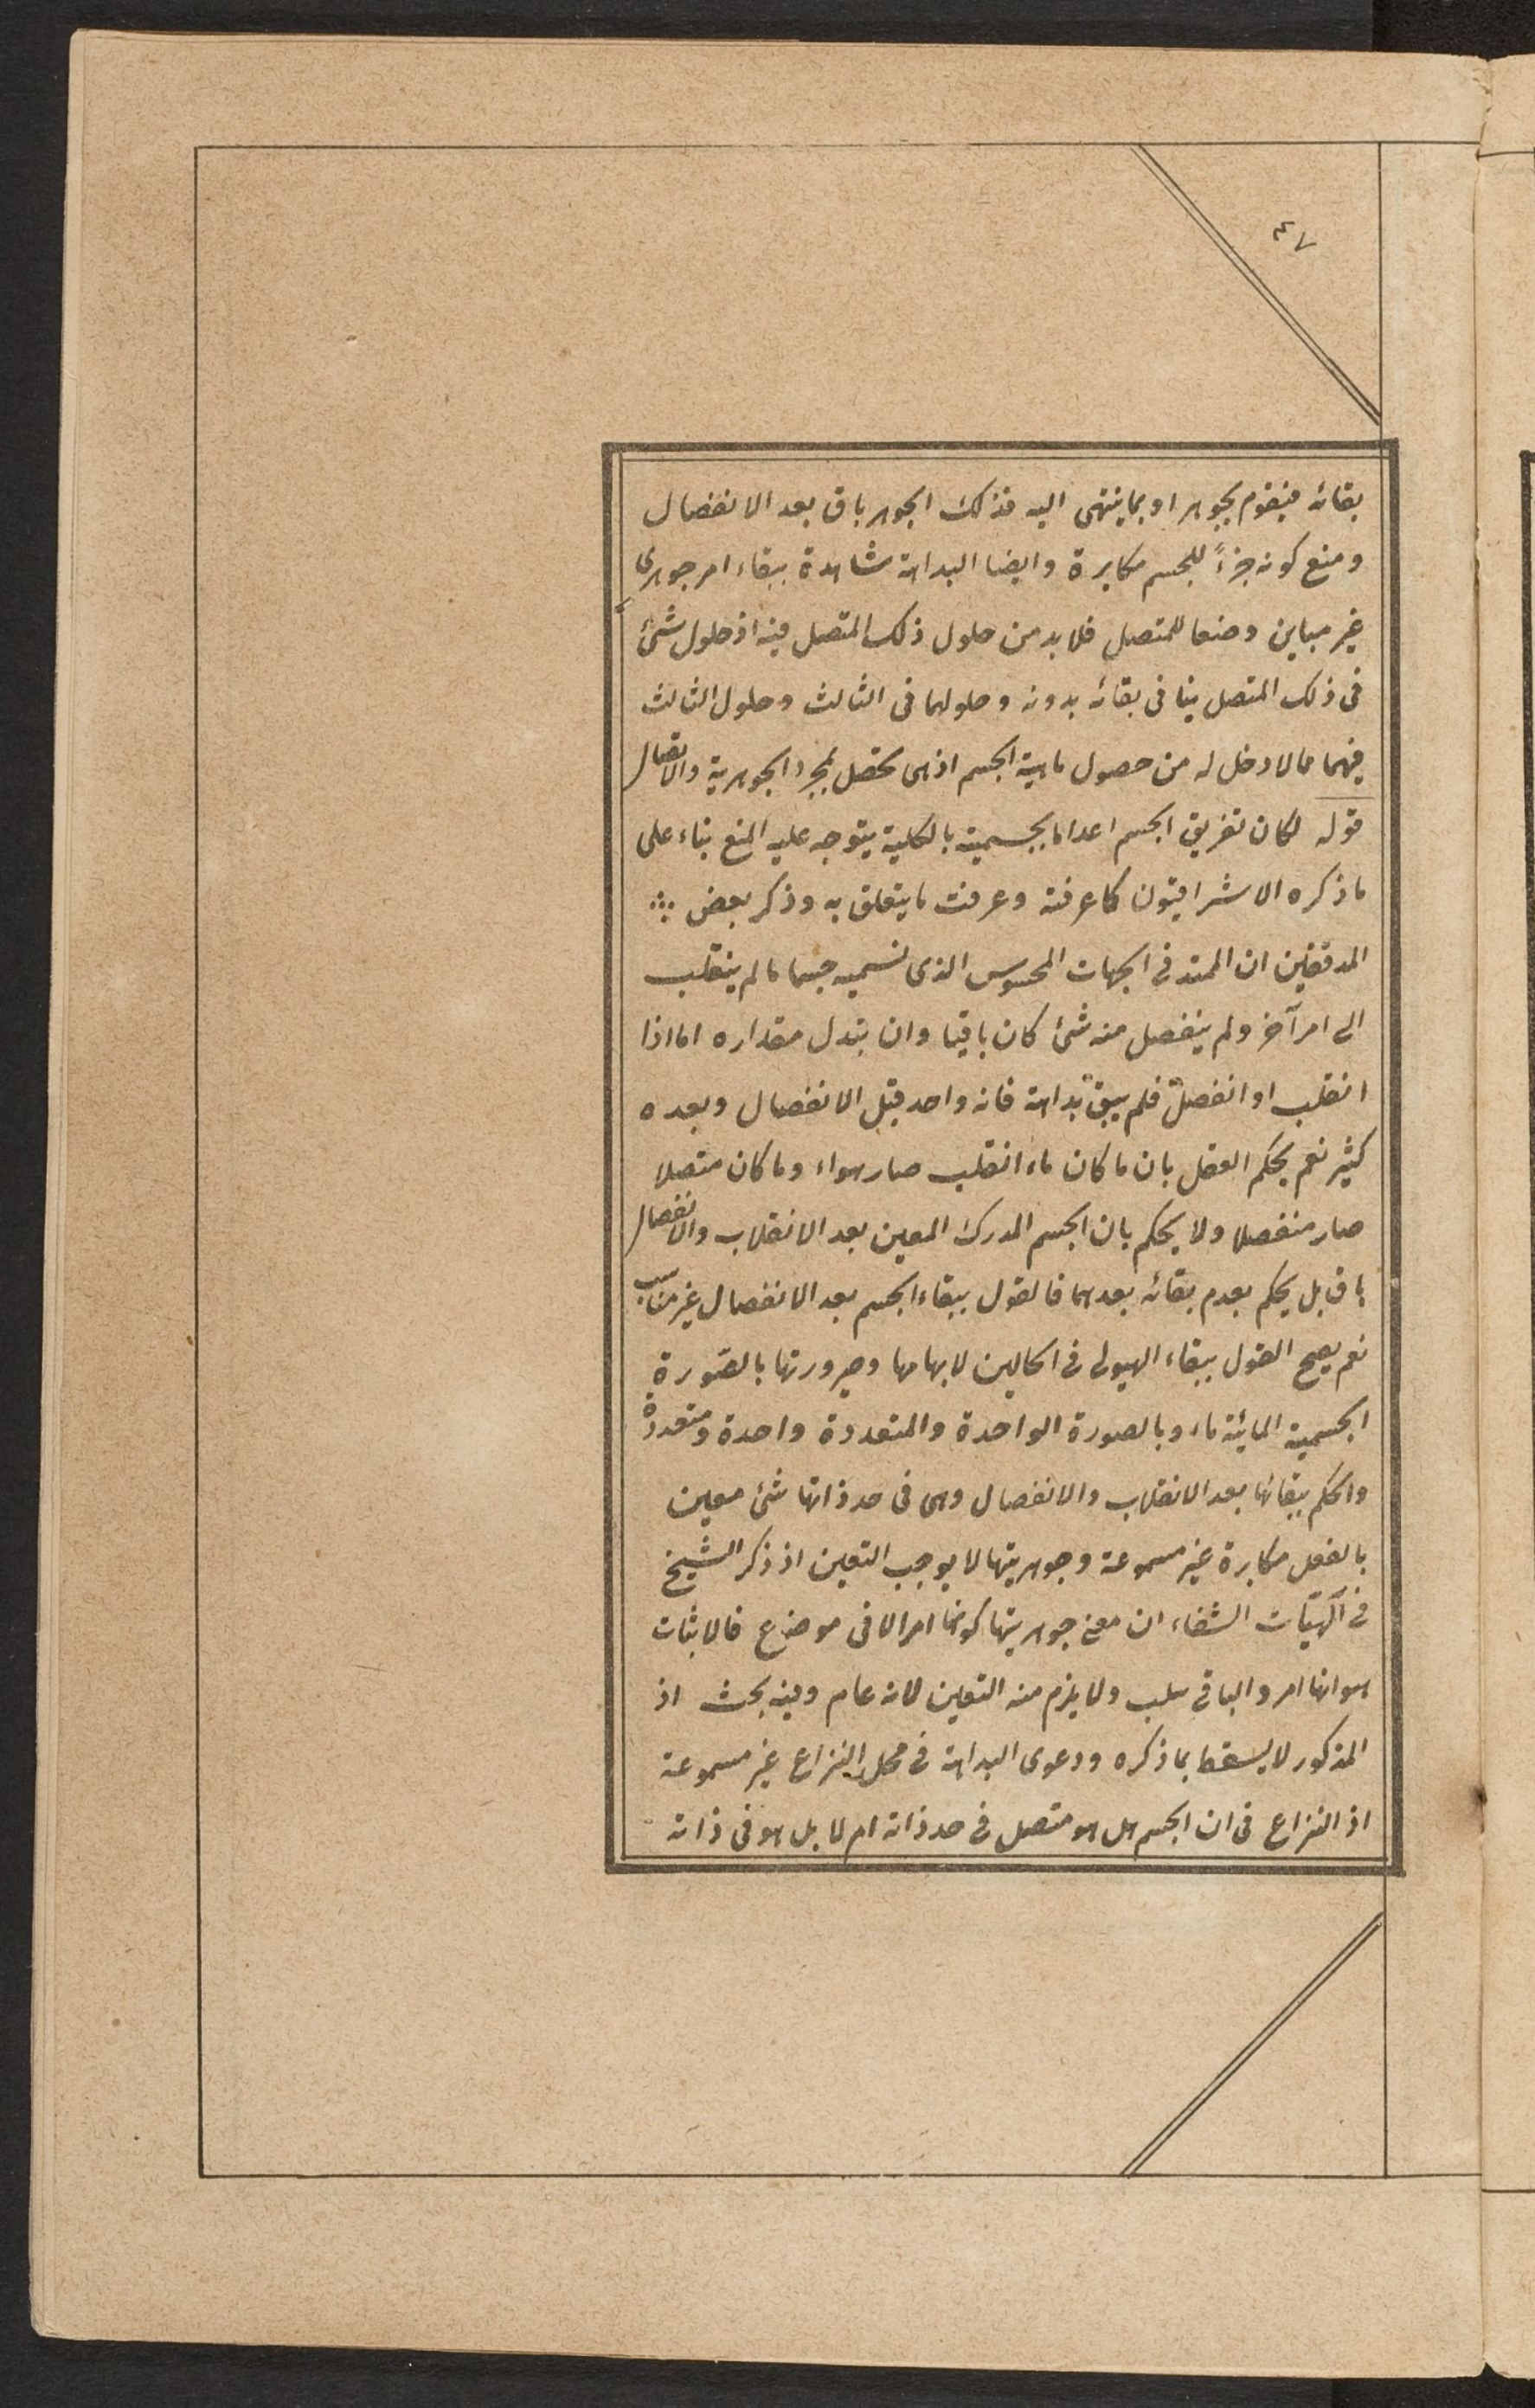 ٤٧
بقائه فيقوم بجوهر او بما ينتهى اليه فذلك الجوهر باق بعد الانفصال
ومنع كونه جزءً للجسم مكابرة وايضا البداهة شاهدة ببقاء امر جوهرى
غير مباين وضعا للمتصل فلا بد من حلول ذلك المتصل فيه اذ حلول شئ
فى ذلك المتصل ينافى بقائه بدونه وحلولهما فى الثالث وحلول الثالث
فيهما مما لا دخل له من حصول ماهية الجسم اذ هى تحصل بمجرد الجوهرية والاتصال
قوله لكان تفريق الجسم اعداما بجسمية بالكلية يتوجه عليه المنع بناء على
ما ذكره الاشراقيون كما عرفته وعرفت ما يتعلق به وذكر بعض
المدققين ان الممتد فى الجهات المحسوس الذى نسميه جسما ما لم ينقلب
الى امر آخر ولم ينفصل منه شئ كان باقيا وان تبدل مقداره اما اذا
انقلب او انفصل فلم يبق بداهة فانه واحد قبل الانفصال وبعده
كثير نعم يحكم العقل بان ما كان ماء انقلب صار هواء وما كان متصلا
صار منفصلا ولا يحكم بان الجسم المدرك المعين بعد الانقلاب والانفصال
باق بل يحكم بعدم بقائه بعدهما فالقول ببقاء الجسم بعد الانفصال غير مناسب
نعم يصح القول ببقاء الهيولى فى الحالين لابهامها وصيرورتها بالصورة
الجسمية المائية ماء وبالصورة الواحدة والمتعددة واحدة ومتعددة
والحكم ببقائها بعد الانقلاب والانفصال وهى فى حد ذاتها شئ معين
بالفعل مكابرة غير مسموعة وجوهريتها لا يوجب التعين اذ ذكر الشيخ
فى آلهيّات الشفاء ان معنى جوهريتها كونها امرا لا فى موضوع فالاثبات
هو انها امر والباقى سلب ولا يلزم منه التعين لانه عام وفيه بحث اذ
المذكور لا يسقط بما ذكره ودعوى البداهة فى محل النزاع غير مسموعة
اذ النزاع فى ان الجسم هل هو متصل فى حد ذاته ام لا بل هو فى ذاته